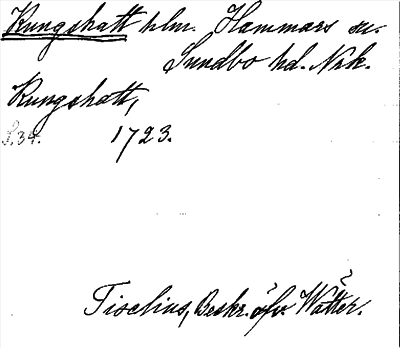 Kungshatt hlm. Hammars sn.
Sundbo hd. Nrk.
Kungshatt,
S. 34. 1723.
Tiselius, Beskr. öfv. Wätter.